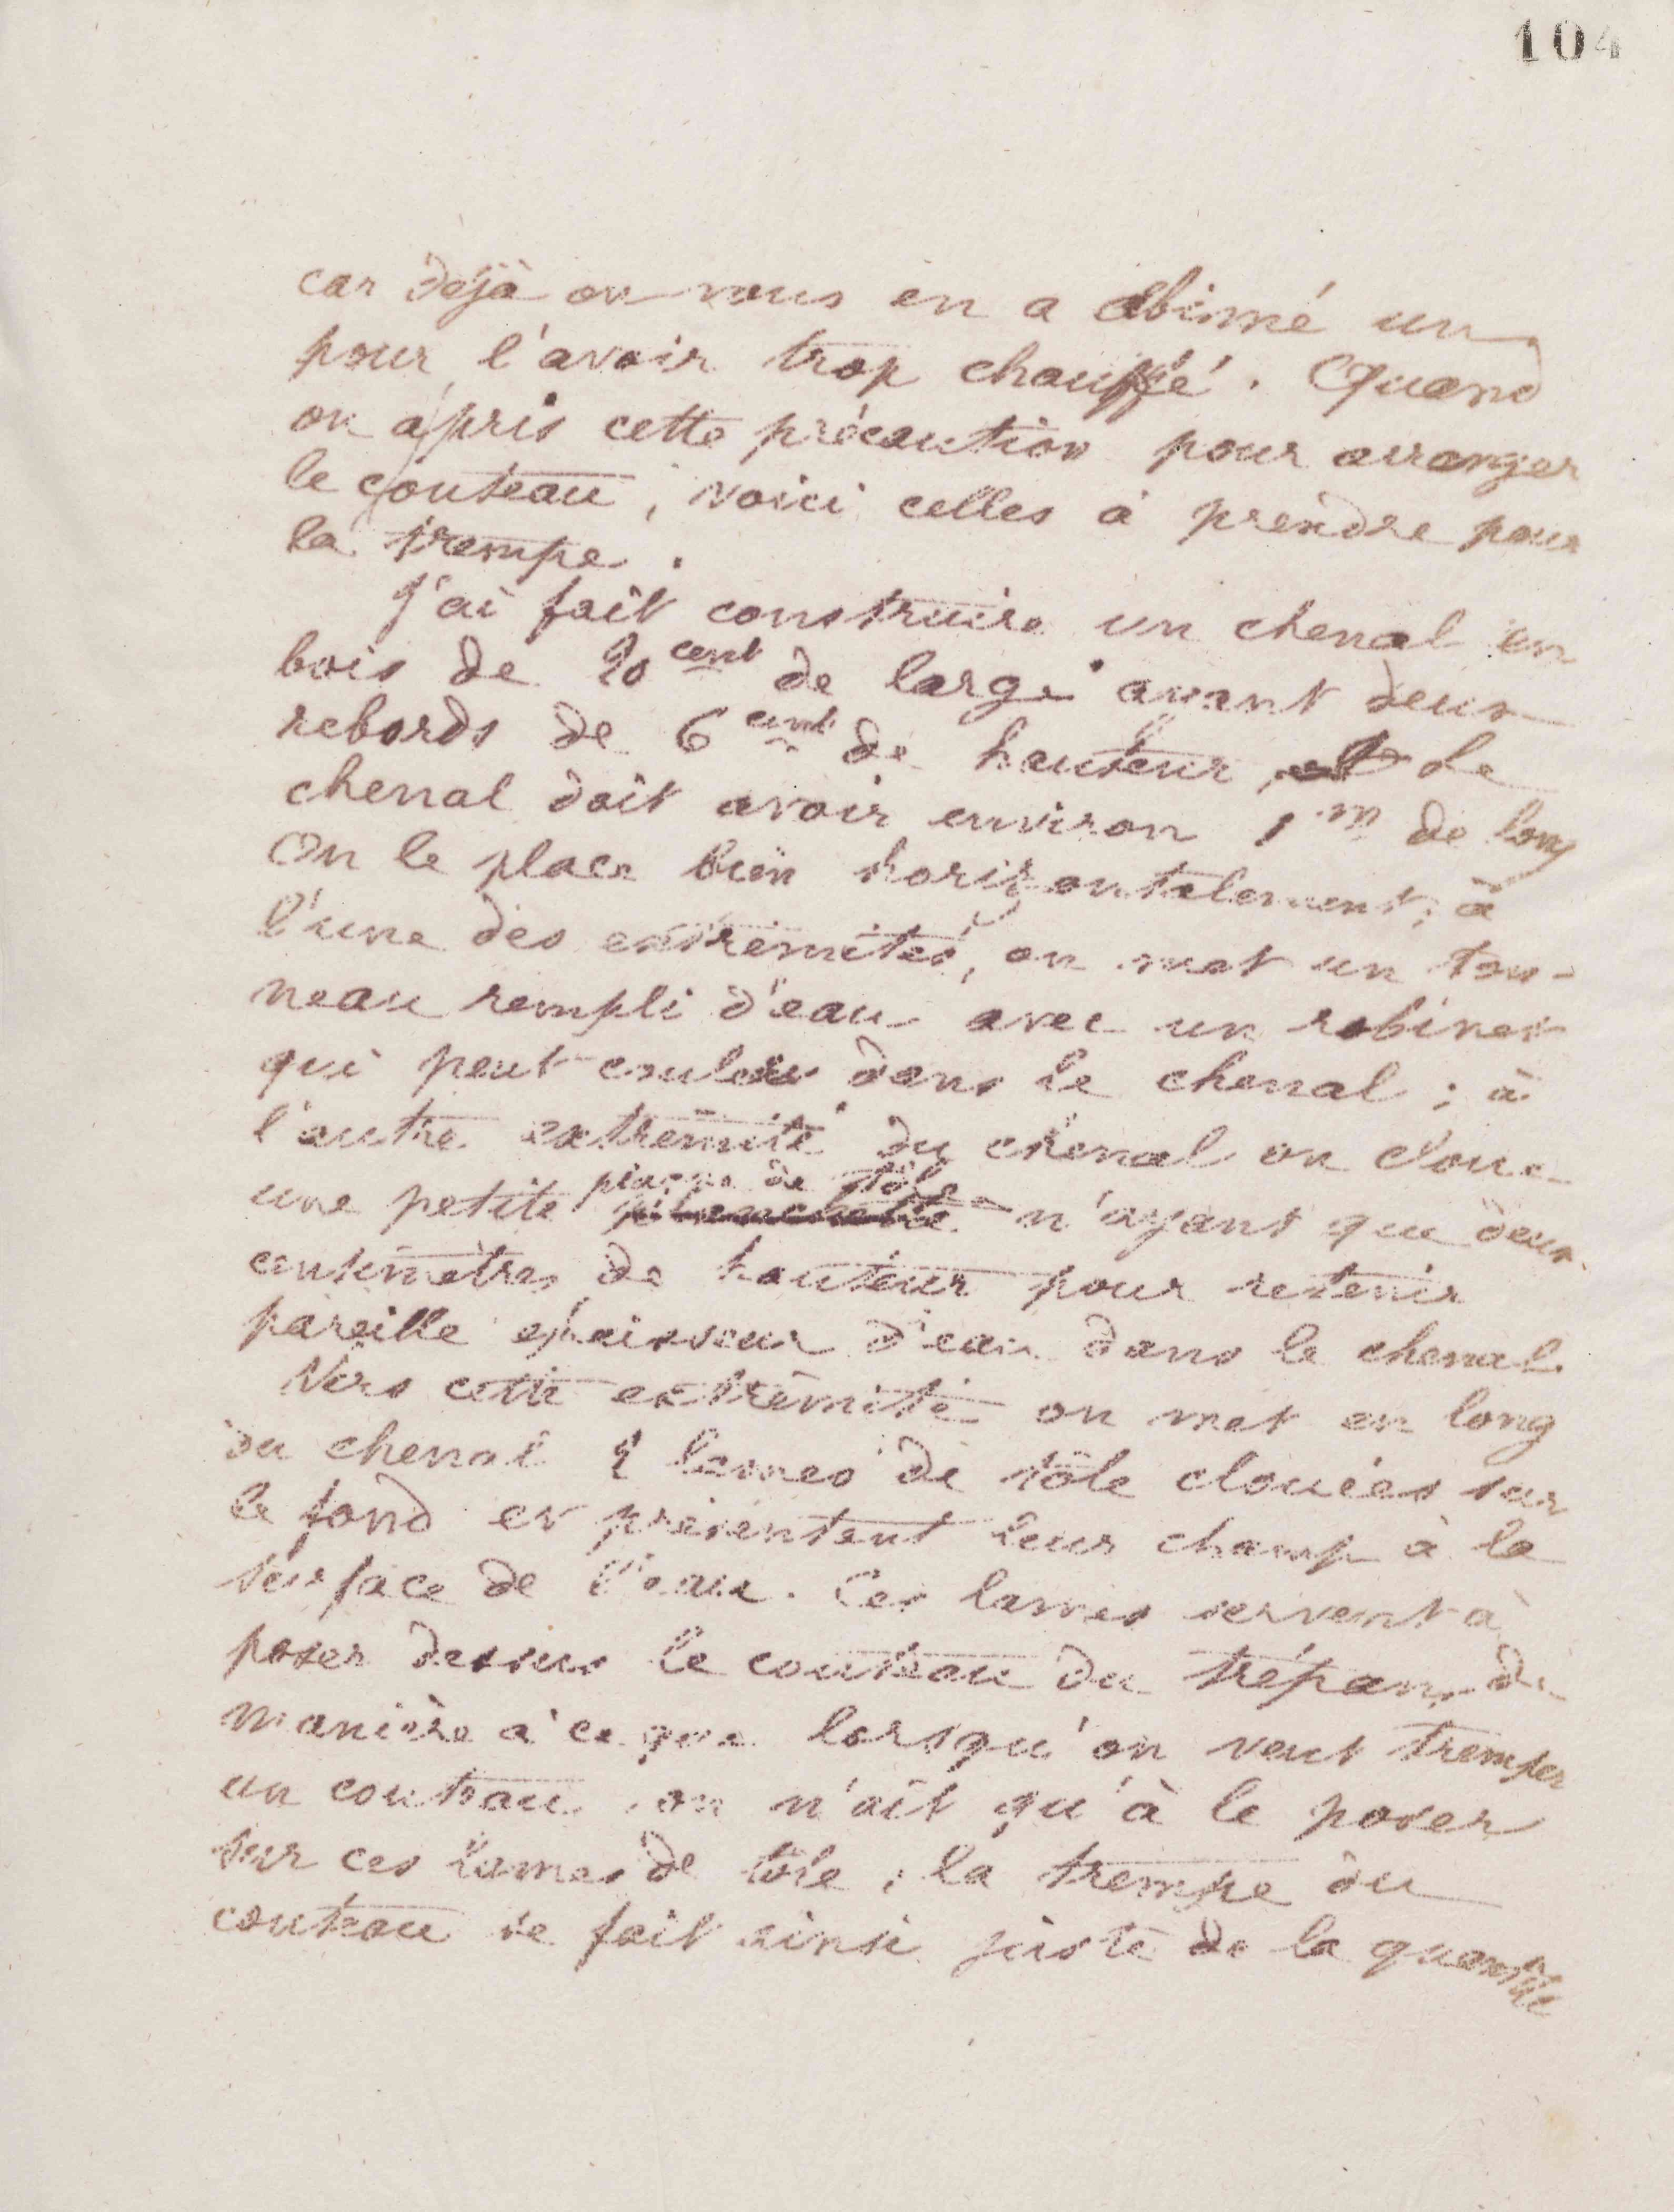 104
car déjà on nous en a abimé un
pour l'avoir trop chauffé. Quand
on a pris cette précaution pour arranger
le couteau, voici celles à prendre pour
la trempe.
J'ai fait construire un chenal en
bois de 20 cent de large ayant deux
rebords de 6 cent de hauteur, Le
chenal doit avoir environ 1 m de long
On le place bien horizontalement; à
l'une des extrémités, on met un ton-
neau rempli d'eau avec un robinet
qui peut couler dans le chenal; à
l'autre extrémité du chenal on cloue
une petite plaque de tôle n'ayant que deux
centimètres de hauteur pour retenir
pareille épaisseur d'eau dans le chenal
Vers cette extrémité on met en long
du chenal 2 lames de tôle clouées sur
le fond et présentent leur champ à la
surface de l'eau. Ces lames servent à
poser dessus le couteau du trépan, de
manière à ce que lorsqu'on veut tremper
un couteau on n'ait qu'à le poser
sur ces lames de tôle; la trempe du
couteau se fait ainsi juste de la quantité